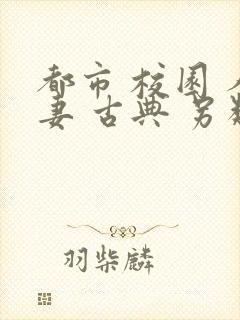 都市 校园
妻 古典 另
羽柴麟